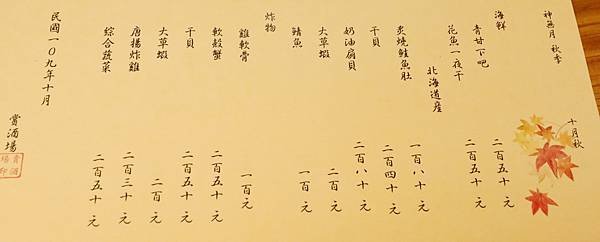 神無月 秋季
十月秋
海鮮
青甘下吧 二百五十元
花魚一夜干 二百五十元
北海道産
炙燒鮭魚肚 一百八十元
干貝 二百四十元
奶油扇貝 二百八十元
大草蝦 二百元
鯖魚 一百元
炸物
雞軟骨 一百元
軟殼蟹 二百五十元
干貝 二百五十元
大草蝦 二百元
唐揚炸雞 二百三十元
綜合蔬菜 二百五十元
民國一0九年十月 賞酒場
賞酒場印